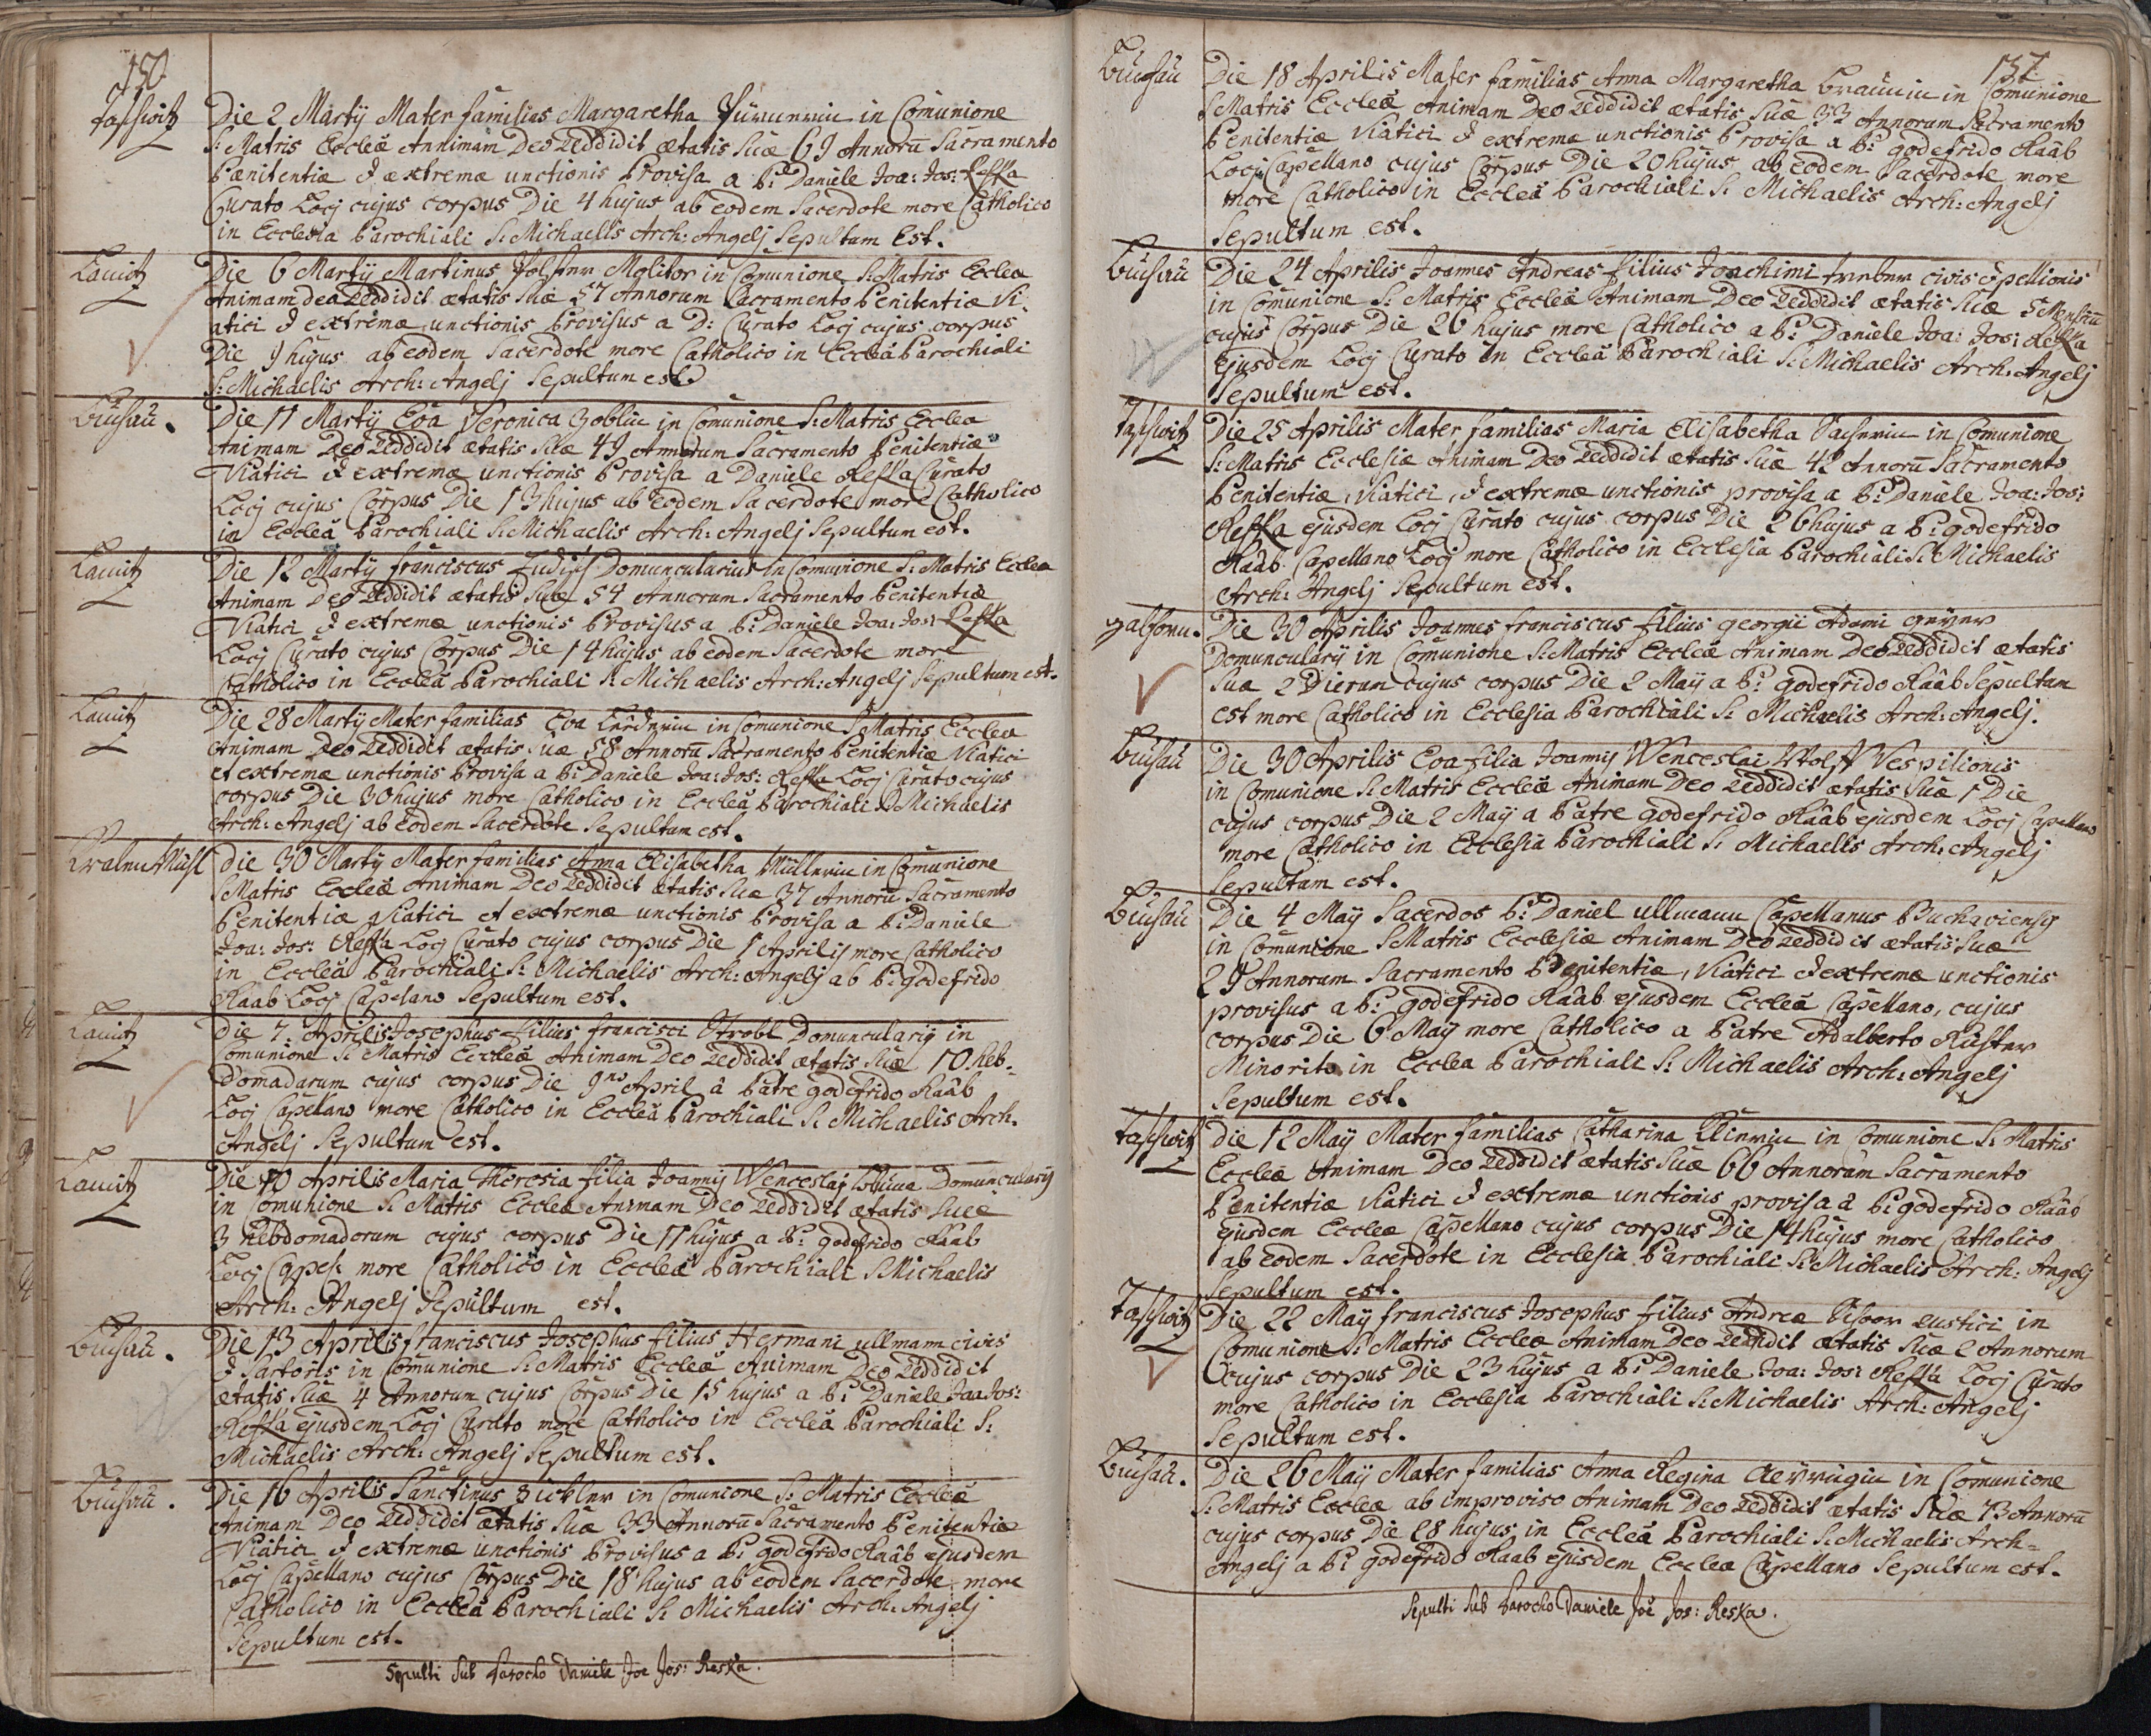 150
Taschwitz
Die 2 Martÿ Mater familias Margaretha in Comunione
S: Matris Eccleä Annimam Deo Reddidit ætatis Suæ 69 Annorū Sacramento
Pænitentiæ & extremæ unctionis Provisa a P: Daniele Joa: Jos: Reska
Curato Locj cujus corpus Die 4 hujus ab eodem Sacerdote more Catholico
in Ecclesia Parochiali S: Michaelis Arch: Angelj Sepultum Est.
Lauitz
Die 6 Martÿ Martinus Molitor in Comunione S: Matris Ecclea
Animam deo Reddidit ætatis Suæ 57 Annorum Sacramento Penitentiæ Vi
atici & extremæ unctionis Provisus a D: Curato Locj cujus corpus
Die 9 hujus ab eodem Sacerdote more Catholico in Eccleä Parochiali
S: Michaelis Arch: Angelj Sepultum est
Buchau.
Die 11 Martÿ Eva Veronica Zoblin in Comunione S: Matris Ecclea
Animam Deo Reddidit ætatis Suæ 49 Annorum Sacramento Penitentiæ
Viatici & extremæ unctionis Provisa a Daniele Reska Curato
Locj cujus Corpus Die 13 hujus ab eodem Sacerdote more Catholico
in Eccleä Parochiali S: Michaelis Arch: Angelj Sepultum est.
Lauitz
Die 12 Martÿ franciscus Domuncularius in Comunione S: Matris Ecclea
Animam Deo Reddidit ætatis Suæ 54 Annorum Sacramento Penitentiæ
Viatici & extremæ unctionis Provisus a P: Daniele Joa: Jos: Reska
Locj Curato cujus Corpus Die 14 hujus ab eodem Sacerdote more
Catholico in Eccleä Parochiali S: Michaelis Arch: Angelj Sepultum est.
Lauitz
Die 28 Martÿ Mater familias Eva in Comunione S Matris Ecclea
Animam Deo Reddidit ætatis Suæ 58 Annorū Sacramento Penitentiæ Viatici
et extremæ unctionis Provisa a P: Daniele Joa: Jos: Reska Locj Curato cujus
corpus Die 30 hujus more Catholico in Eccleä Parochiali S: Michaelis
Arch: Angelj ab eodem Sacerdote Sepultum est.
Die 30 Martÿ Mater familias Anna Elisabetha Müllerin in Comunione
S Matris Eccleä Animam Deo Reddidit ætatis Suæ 37 Annorū Sacramento
Penitentiæ Viatici et extremæ unctionis Provisa a P: Daniele
Joa: Jos: Reska Locj Curato cujus corpus Die 1 Aprilis more Catholico
in Eccleä Parochiali S: Michaelis Arch: Angelj ab P: godefrido
Raab Locj Capelano Sepultum est.
Lauitz
Die 7: Aprilis Josephus filius francisci Strobl Domuncularij in
Comunione S: Matris Eccleä Animam Deo Reddidit ætatis Suæ 10 heb-
domadarum cujus corpus Die 9no April â Patre godefrido Raâb
Locj Capellano more Catholico in Eccleä Parochiali S: Michaelis Arch.
Angelj Sepultum est.
Lauitz
Die 10 Aprilis Maria Theresia filia Joannÿ Wenceslaj Domuncularÿ
in Comunione S: Matris Eccleæ Animam Deo Reddidit ætatis Suæ
3 hebdomadorum cujus corpus Die 11 hujus a P: godefrido Raâb
Locj Capel: more Catholico in Eccleä Parochiali S Michaelis
Arch: Angelj Sepultum est.
Buchau.
Die 13 Aprilis franciscus Josephus filius Hermani ullmann civis
& Sartoris in Comunione S: Matris Eccleä Animam Deo Reddidit
ætatis Suæ 4 Annorum cujus Corpus Die 15 hujus a P: Daniele Joa Jos:
Reska ejusdem Locj Curato more Catholico in Eccleä Parochiali S:
Michaelis Arch: Angelj Sepultum est.
Buchau.
Die 16 Aprilis Sanctinus Zickler in Comunione S: Matris Eccleä
Animam Deo Reddidit ætatis Suæ 33 Annorū Sacramento Penitentiæ
Viatici & extremæ unctionis Provisus a P: godefrido Raâb ejusdem
Locj Capellano cujus Corpus Die 18 hujus ab eodem Sacerdote more
Catholico in Eccleä Parochiali S: Michaelis Arch: Angelj
Sepultum est.
Sepulti Sub Parocho Daniele Joe Jos: Reska.
151
Buchau
Die 18 Aprilis Mater familias Anna Margaretha Braunin in Comunione
S Matris Eccleä Animam Deo Reddidit ætatis Suæ 33 Annorum Sacramento
Penitentiæ Viatici & extremæ unctionis Provisa a P: godefrido Raâb
Locj Capellano cujus Corpus Die 20 hujus ab eodem Sacerdote more
more Catholico in Eccleä Parochiali S: Michaelis Arch: Angelj
Sepultum est.
Buchau
Die 24 Aprilis Joannes Andreas filius Joachimi civis & pellionis
in Comunione S: Matris Eccleä Animam Deo Reddidit ætatis Suæ 5 Mensiū
cujus Corpus Die 26 hujus more Catholico a P: Daniele Joa: Jos: Reska
Ejusdem Locj Curato in Eccleä Parochiali S: Michaelis Arch: Angelj
Sepultum est.
Taschwitz
Die 25 Aprilis Mater familias Maria Elisabetha in Comunione
S: Matris Ecclesiæ Animam Deo Reddidit ætatis Suæ 42 Annorū Sacramento
Penitentiæ, Viatici, & extremæ unctionis provisa a P: Daniele Joa: Jos:
Reska ejusdem Locj Curato cujus corpus Die 26 hujus a P: godefrido
Raâb Capellano Locj more Catholico in Ecclesia Parochiali S: Michaelis
Arch: Angelj Sepultum est.
Die 30 Aprilis Joannes franciscus filius georgii Adami geyer
Domuncularÿ in Comunione S: Matris Eccleä Animam Deo Reddidit ætatis
Suæ 2 Dierum cujus corpus Die 2 Maÿ a P: godefrido Raâb Sepultum
est more Catholico in Ecclesia Parochiali S: Michaelis Arch: Angelj.
Buchau
Die 30 Aprilis Eva filia Joannis Wenceslai Wolff Vespilionis
in Comunione S: Matris Eccleä Animam Deo Reddidit ætatis Suæ 1 Die
cujus corpus Die 2 Maÿ a Patre godefrido Raâb ejusdem Locj Capellano
more Catholico in Ecclesia Parochiali S: Michaelis Arch: Angelj
Sepultum est.
Buchau
Die 4 Maÿ Sacerdos P: Daniel ullmann Capellanus Buchaviensis
in Comunione S Matris Ecclesiæ Animam Deo Reddidit ætatis Suæ
29 Annorum Sacramento Penitentiæ, Viatici & extremæ unctionis
provisus a P: godefrido Raâb ejusdem Eccleä Capellano, cujus
corpus Die 6 Maÿ more Catholico a Patre Adalberto
Minorita in Ecclea Parochiali S: Michaelis Arch: Angelj
Sepultum est.
Taschwitz
Die 12 Maÿ Mater familias Catharina in Comunione S: Matris
Eccleä Animam Deo Reddidit ætatis Suæ 66 Annorum Sacramento
Penitentiæ Viatici & extremæ unctionis provisa â P: godefrido Raâb
ejusdem Eccleæ Capellano cujus corpus Die 14 hujus more Catholico
ab eodem Sacerdote in Ecclesia Parochiali S: Michaelis Arch: Angelj
Sepultum est.
Taschwitz
Die 22 Maÿ franciscus Josephus filius Andreæ rustici in
Comunione S: Matris Eccleæ Animam Deo Reddidit ætatis Suæ 2 Annorum
cujus corpus Die 23 hujus a P: Daniele Joa: Jos: Reska Locj Curato
more Catholico in Ecclesia Parochiali S: Michaelis Arch: Angelj
Sepultum est.
Buchau.
Die 26 Maÿ Mater familias Anna Regina in Comunione
S: Matris Eccleæ ab improviso Animam Deo Reddidit ætatis Suæ 73 Annorū
cujus corpus Die 28 hujus in Eccleä Parochiali S: Michaelis Arch=
Angelj a P: godefrido Raab ejusdem Eccleæ Capellano Sepultum est.
Sepulti Sub Parocho Daniele Joe Jos: Reska.